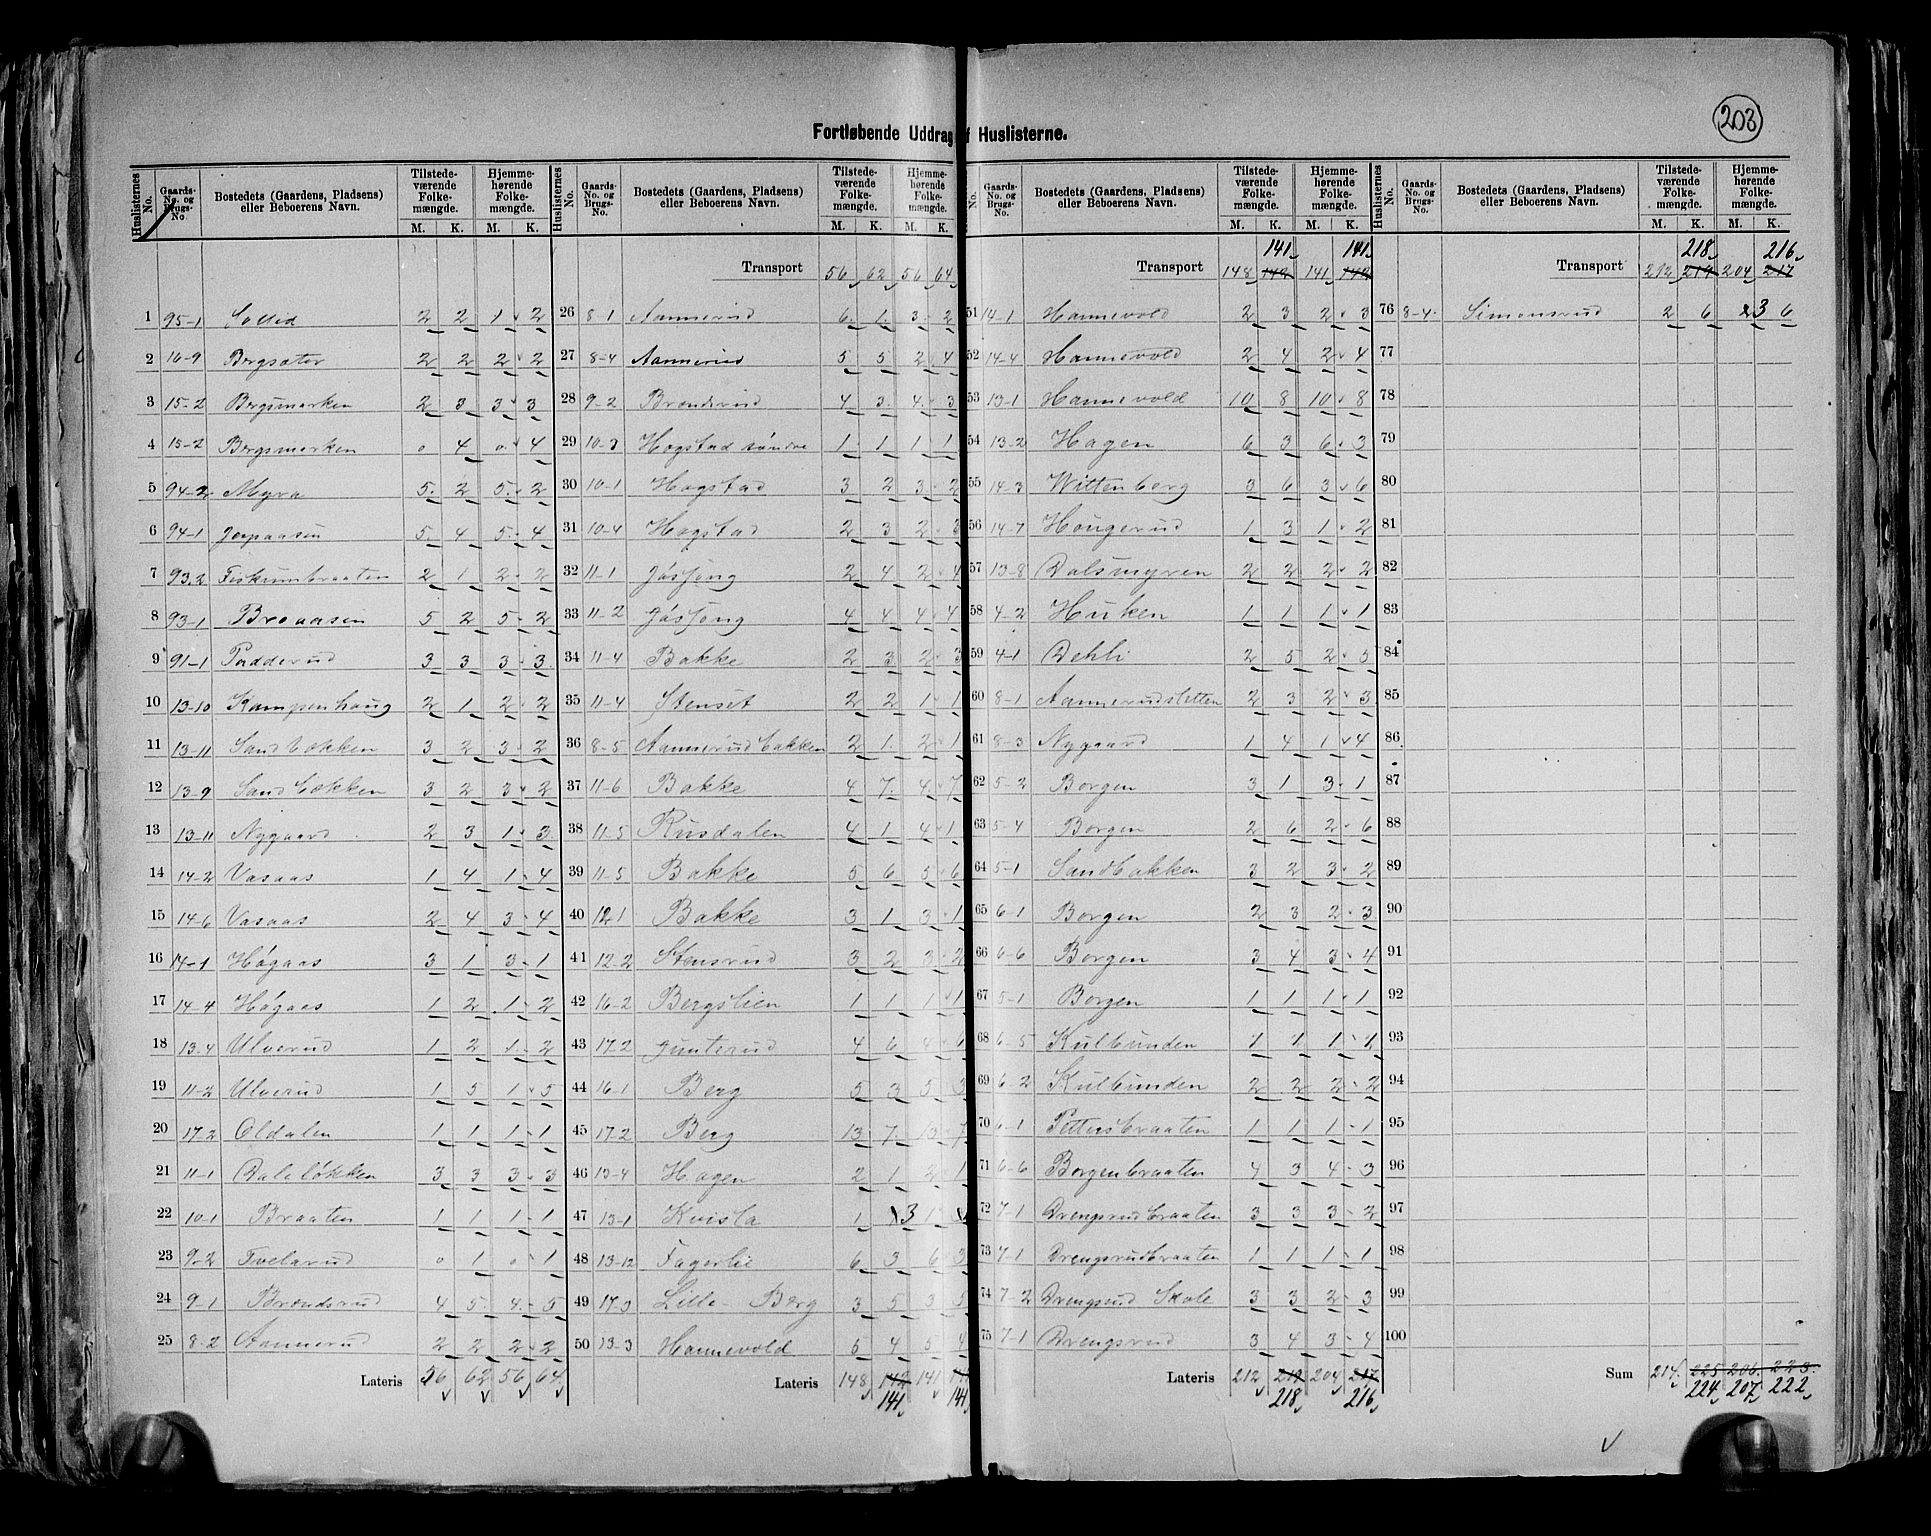 203
Fortløbende Uddrag f Huslisterne.
Huslisternes No. | Gaards-No. og Brugs-No | Bostedets (Gaardens, Pladsens) eller Beboerens Navn. | Tilstedeværende Folkemængde. M. K. | Hjemmehørende Folkemængde. M. K.
1 95-1 Sollid 2 2 1 2
2 16-9 Bergsæter 2 2 2 2
3 15-2 Bergsmarken 2 3 3 3
4 15-2 Bergsmarken 0 4 0 4
5 94-2 Myra 5 2 5 2
6 94-1 Jerpaasen 5 4 5 4
7 93-2 Fiskumbraaten 2 1 2 2
8 93-1 Broaasen 5 2 5 2
9 91-1 Padderud 3 3 3 3
10 13-10 Kampenhaug 2 1 2 2
11 13-11 Sandbækken 3 2 3 2
12 13-9 Sandbækken 3 2 3 2
13 13-11 Nygaard 2 3 1 3
14 14-2 Vasaas 1 4 1 4
15 14-6 Vasaas 2 4 3 4
16 14-1 Høgaas 3 1 3 1
17 14-4 Høgaas 1 2 1 2
18 13-4 Ulverud 1 2 1 2
19 11-2 Ulverud 1 5 1 5
20 17-2 Oldalen 1 1 1 1
21 11-1 Daleløkken 3 3 3 3
22 10-1 Braaten 1 1 1 1
23 9-2 Tvelarud 0 1 0 1
24 9-1 Brændsrud 4 5 4 5
25 8-2 Aannerud 2 2 2 2
Lateris 56 62 56 64
Huslisternes No. | Gaards-No. og Brugs-No. | Bostedets (Gaardens, Pladsens) eller Beboerens Navn. | Tilstedeværende Folkemængde. M. K. | Hjemmehørende Folkemængde. M. K.
Transport 56 62 56 64
26 8-1 Aannerud 6 1 3 2
27 8-4 Aannerud 5 5 2 4
28 9-2 Brændsrud 4 3 4 3
29 10-3 Hogstad søndre 1 1 1 1
30 10-1 Hogstad 3 2 3 2
31 10-4 Hogstad 2 3 2 3
32 11-1 Jøssong 2 4 2 4
33 11-2 Jøssong 4 4 4 4
34 11-4 Bakke 2 3 2 3
35 11-4 Stenset 2 2 1 1
36 8-5 Aannerudbakken 2 1 2 1
37 11-6 Bakke 4 7 4 7
38 11-5 Rusdalen 4 1 4 1
39 11-5 Bakke 5 6 5 6
40 12-1 Bakke 3 1 3 1
41 12-2 Stensrud 3 2 3 2
42 16-2 Bergslien 1 1 1 1
43 17-2 Gunterud 4 6 4 6
44 16-1 Berg 5 3 5 3
45 17-2 Berg 13 7 13 7
46 13-4 Hagen 2 1 2 1
47 13-1 Kvista 1 3 1
48 13-12 Fagerlie 6 3 6 3
49 17-3 Lille-Berg 3 5 3 5
50 13-3 Hannevold 5 4 5 4
Lateris 148 142 141 141
141 141
No. | Gaards-No. og Brugs-No. | Bostedets (Gaardens, Pladsens) eller Beboerens Navn. | Tilstedeværende Folkemængde. M. K. | Hjemmehørende Folkemængde. M. K.
141 141
Transport 148 142 141 142
51 14-1 Hannevold 2 3 2 3
52 14-4 Hannevold 2 4 2 4
53 13-1 Hannevold 10 8 10 8
54 13-2 Hagen 6 3 6 3
55 14-3 Wittenberg 3 6 3 6
56 14-7 Hougerud 1 3 1 2
57 13-8 Dalsmyren 2 2 2 2
58 4-2 Huken 1 1 1 1
59 4-1 Dehli 2 5 2 5
60 8-1 Aannerudsletten 2 3 2 3
61 8-3 Nygaard 1 4 1 4
62 5-2 Borgen 3 1 3 1
63 5-4 Borgen 2 6 2 6
64 5-1 Sandbakken 3 2 3 2
65 6-1 Borgen 2 3 2 3
66 6-6 Borgen 3 4 3 4
67 5-1 Borgen 1 1 1 1
68 6-5 Kulbunden 1 1 1 1
69 6-2 Kulbunden 2 2 2 2
70 6-1 Pettersbraaten 1 1 1 1
71 6-6 Borgenbraaten 4 3 4 3
72 7-1 Drengsrudbraaten 3 3 3 2
73 7-1 Drengsrudbraaten 1 1 1 1
74 7-2 Drengsrud Skole 3 3 2 3
75 7-1 Drengsrud 3 4 3 4
Lateris 212 219 204 217
218 216
Huslisternes No. | Gaards-No. og Brugs-No. | Bostedets (Gaardens, Pladsens) eller Beboerens Navn. | Tilstedeværende Folkemængde. M. K. | Hjemmehørende Folkemængde. M. K.
218 216
Transport 212 219 204 217
76 8-4 Simonsrud 2 6 3 6
77
78
79
80
81
82
83
84
85
86
87
88
89
90
91
92
93
94
95
96
97
98
99
100
Sum 214 225 206 223
224 207 222